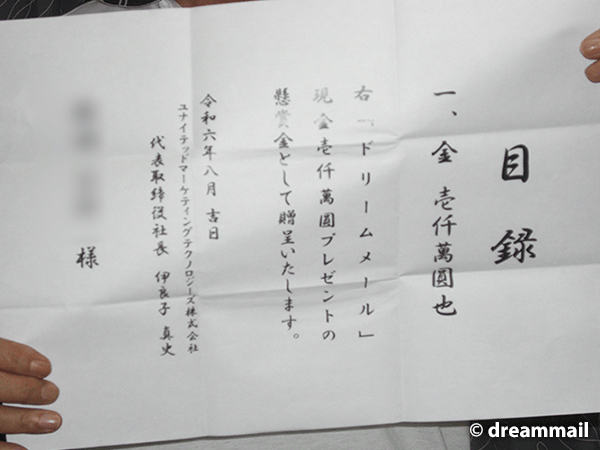 目録
一、金 壱仟萬圓也
右「ドリームメール」
現金壱仟萬圓プレゼントの
懸賞金として贈呈いたします。
令和六年八月 吉日
ユナイテッドマーケティングテクノロジーズ株式会社
代表取締役社長 伊良子 真史
様
© dreammail